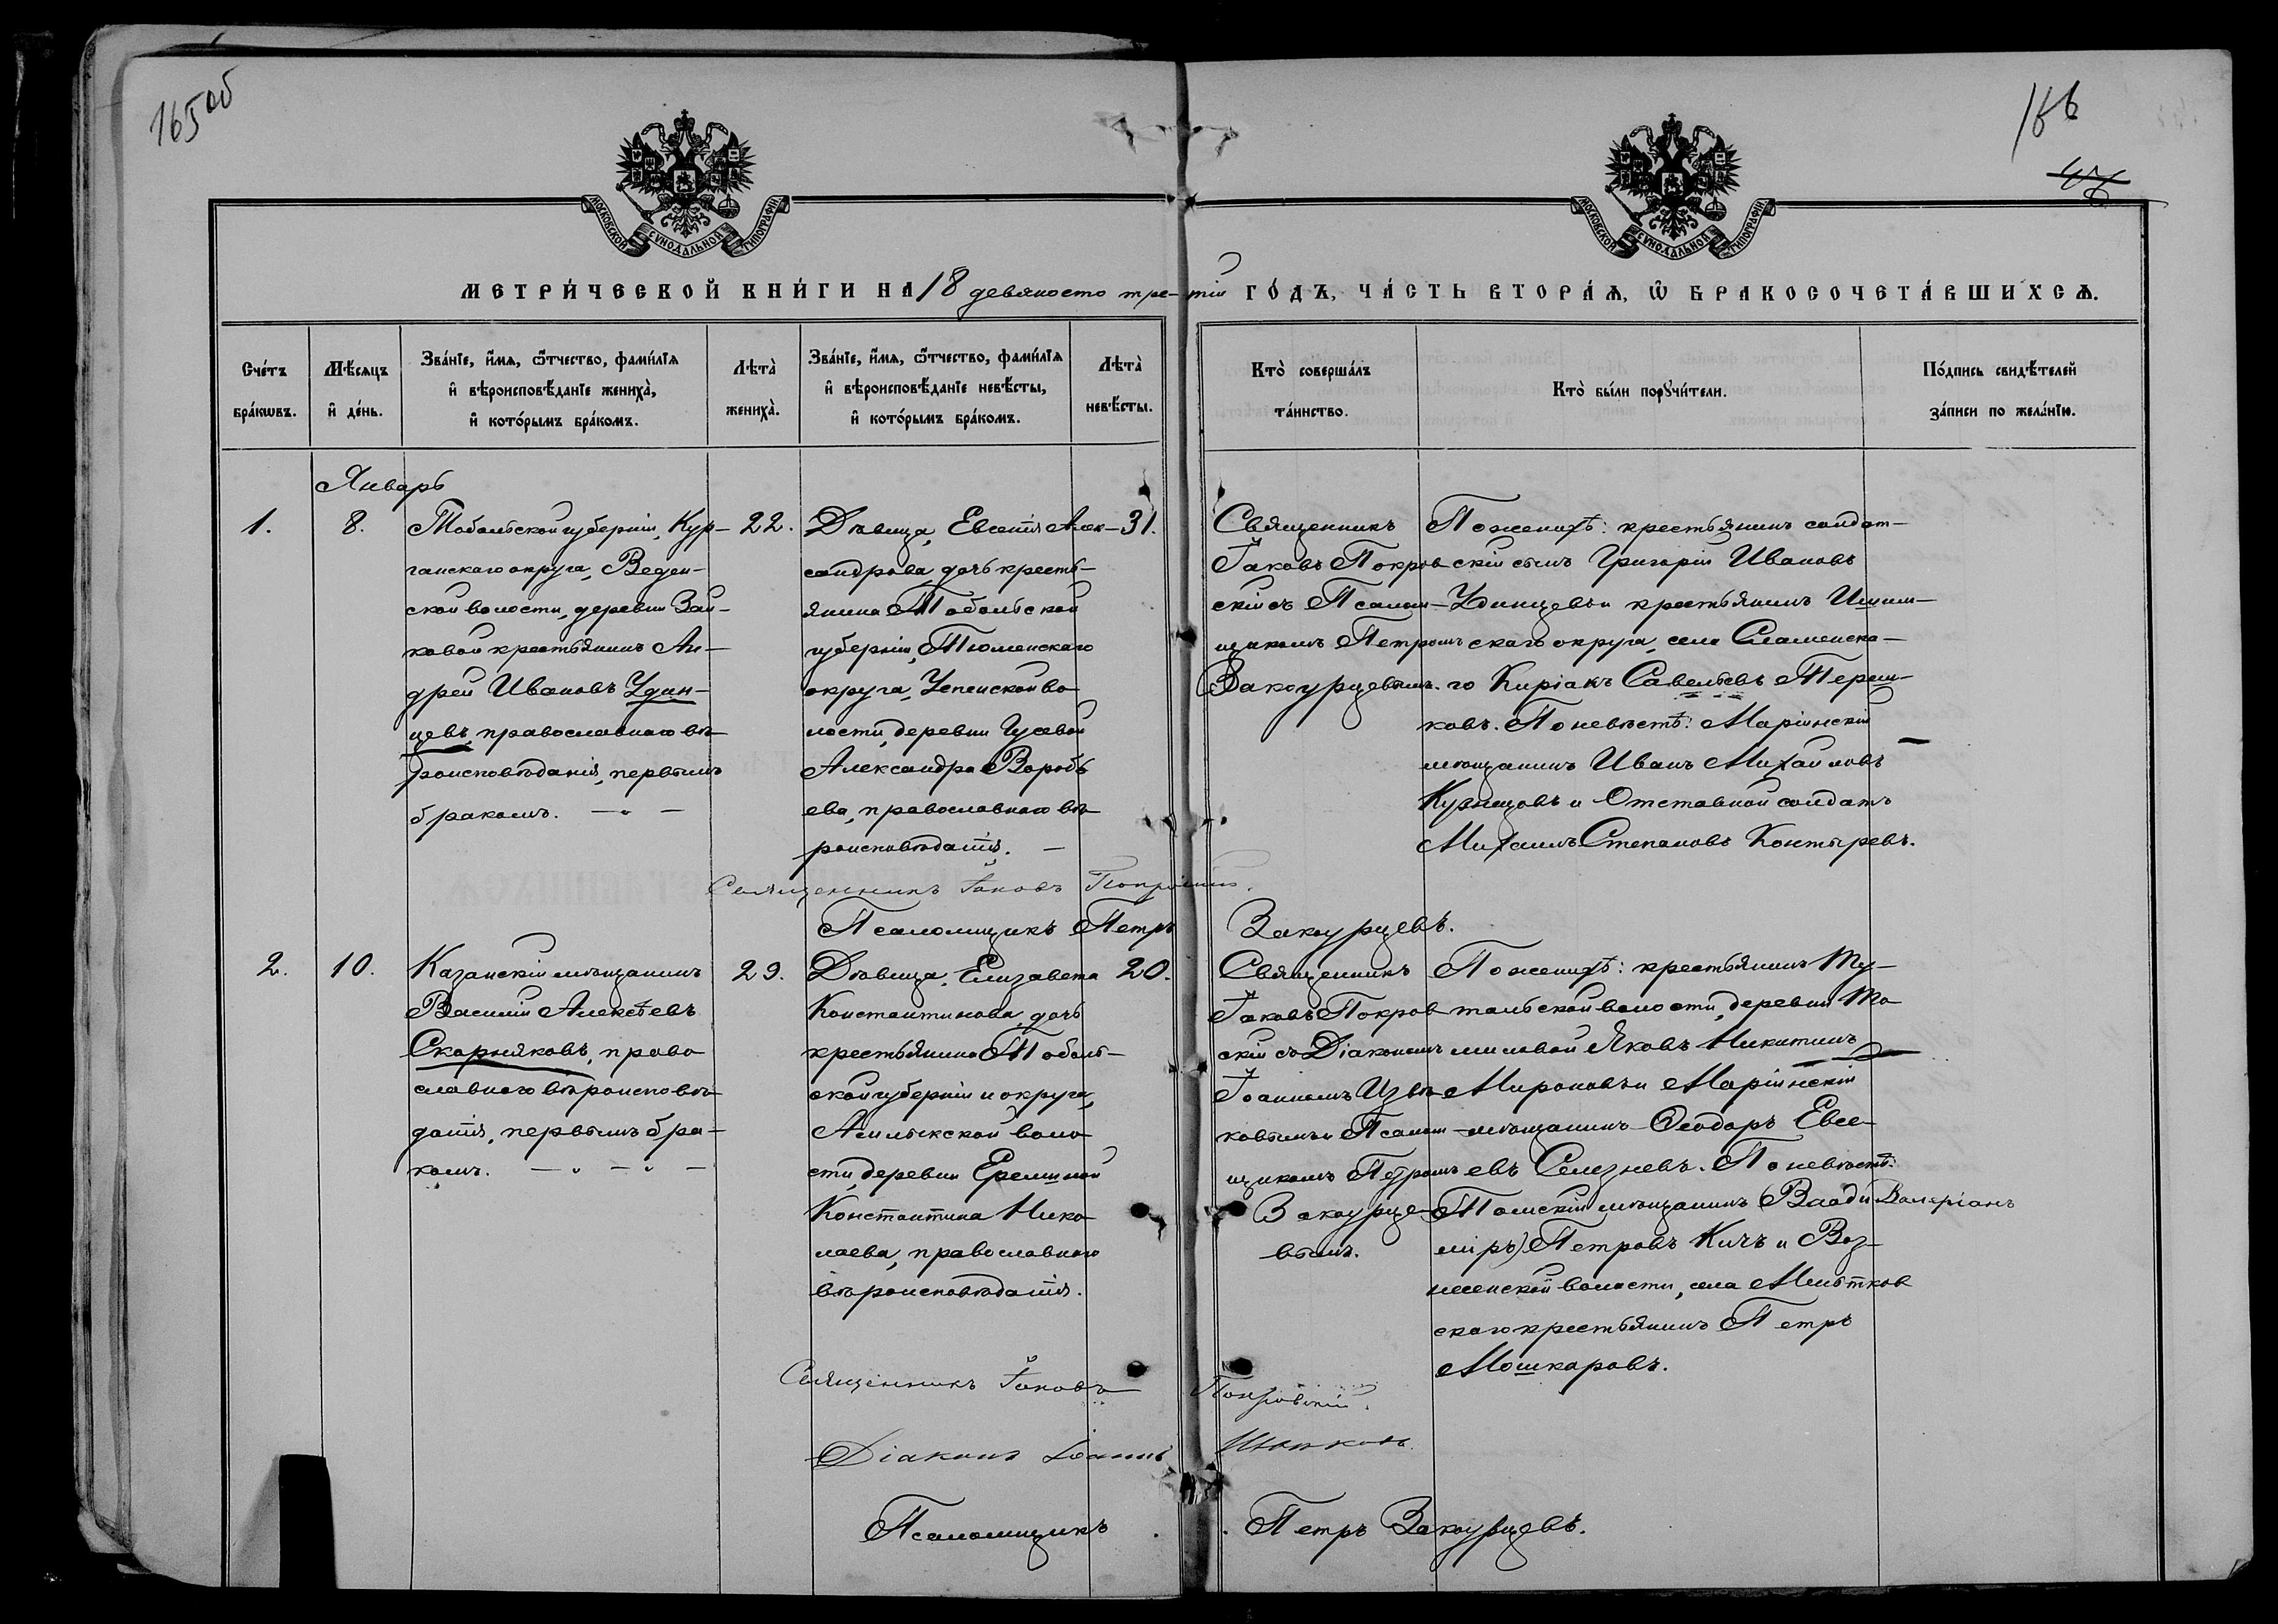 165об
166
МОСКОВСКОЙ СѴНОДАЛЬНОЙ ТИПОГРАФІИ
МОСКОВСКОЙ СѴНОДАЛЬНОЙ ТИПОГРАФІИ
МЕТРИ́ЧЕСКОЙ КНИ́ГИ НА 18 девяносто тре-тій ГО́ДЪ, ЧА́СТЬ ВТОРА́Ѧ, Ѡ҆ БРАКОСОЧЕТА́ВШИХСѦ.
Сче́тъ бра́кѡвъ.
Мѣ́сяцъ и҆ де́нь.
Зва́нїе, и҆́мѧ, ѻ҆́тчество, фамѝлїѧ и҆ вѣроисповѣ́данїе жениха̀, и҆ кото́рымъ бра́комъ.
Лѣта̀ жениха̀.
Зва́нїе, и҆́мѧ, ѻ҆́тчество, фамѝлїѧ и҆ вѣроисповѣ́данїе невѣ́сты, и҆ кото́рымъ бра́комъ.
Лѣта̀ невѣ́сты.
Кто̀ соверша́лъ та́инство.
Кто̀ бы́ли порꙋчи́тели.
По́дпись свидѣ́телей за́писи по жела́нїю.
Январь
1.
8.
Тобольской губерніи, Кур-
ганскаго округа, Веден-
ской волости, деревни Зай-
ковой крестьянинъ Ан-
дрей Ивановъ Удин-
цевъ, православнаго вѣ-
роисповѣданія, первымъ
бракомъ.
22.
Дѣвица, Евгенія Алек-
сандрова, дочь кресть-
янина Тобольской
губерніи, Тюменскаго
округа, Успенской во
лости, деревни Гусевой
Александра Воробь
ева, православнаго вѣ
роисповѣданія.
31.
Священникъ
Іаковъ Покров
скій съ Псалом-
щикомъ Петромъ
Закоурцевымъ.
По женихѣ: крестьянинъ солдат-
скій сынъ Григорій Ивановъ
Удинцевъ и крестьянинъ Ишим-
скаго округа, села
го Киріакъ Савельевъ Тереш-
ковъ. По невѣстѣ: Маріинскій
мѣщанинъ Иванъ Михайловъ
Кузнецовъ и Отставной солдатъ
Михаилъ Степановъ Контыревъ.
Священникъ Іаковъ Покровскій.
Псаломщикъ Петръ Закоурцевъ.
2.
10.
Казанскій мѣщанинъ
Василій Алексѣевъ
Скорняковъ, право
славнаго вѣроисповѣ-
данія, первымъ бра-
комъ.
29.
Дѣвица, Елизавета
Константинова, дочь
крестьянина Тоболь-
ской губерніи и округа,
Ашлыкской воло
сти, деревни Ереминой
Константина Нико
лаева, православнаго
вѣроисповѣданія.
20.
Священникъ
Іаковъ Покров
скій съ Діакономъ
Іоанномъ Ивѣ
ковымъ и Псалом-
щикомъ Петромъ
Закоурце-
вымъ.
По женихѣ: крестьянинъ Ту-
тальской волости, деревни То
миловой Яковъ Никитинъ
Мироновъ и Маріинскій
мѣщанинъ Ѳеодоръ Евсе-
евъ Селезневъ. По невѣстѣ:
Томскій мѣщанинъ (Влади Валеріанъ
міръ) Петровъ Кичъ и Воз-
несенской волости, села
скаго крестьянинъ Петръ
Мошкаровъ.
Священникъ Іаковъ Покровскій.
Діаконъ Іоаннъ
Псаломщикъ Петръ Закоурцевъ.